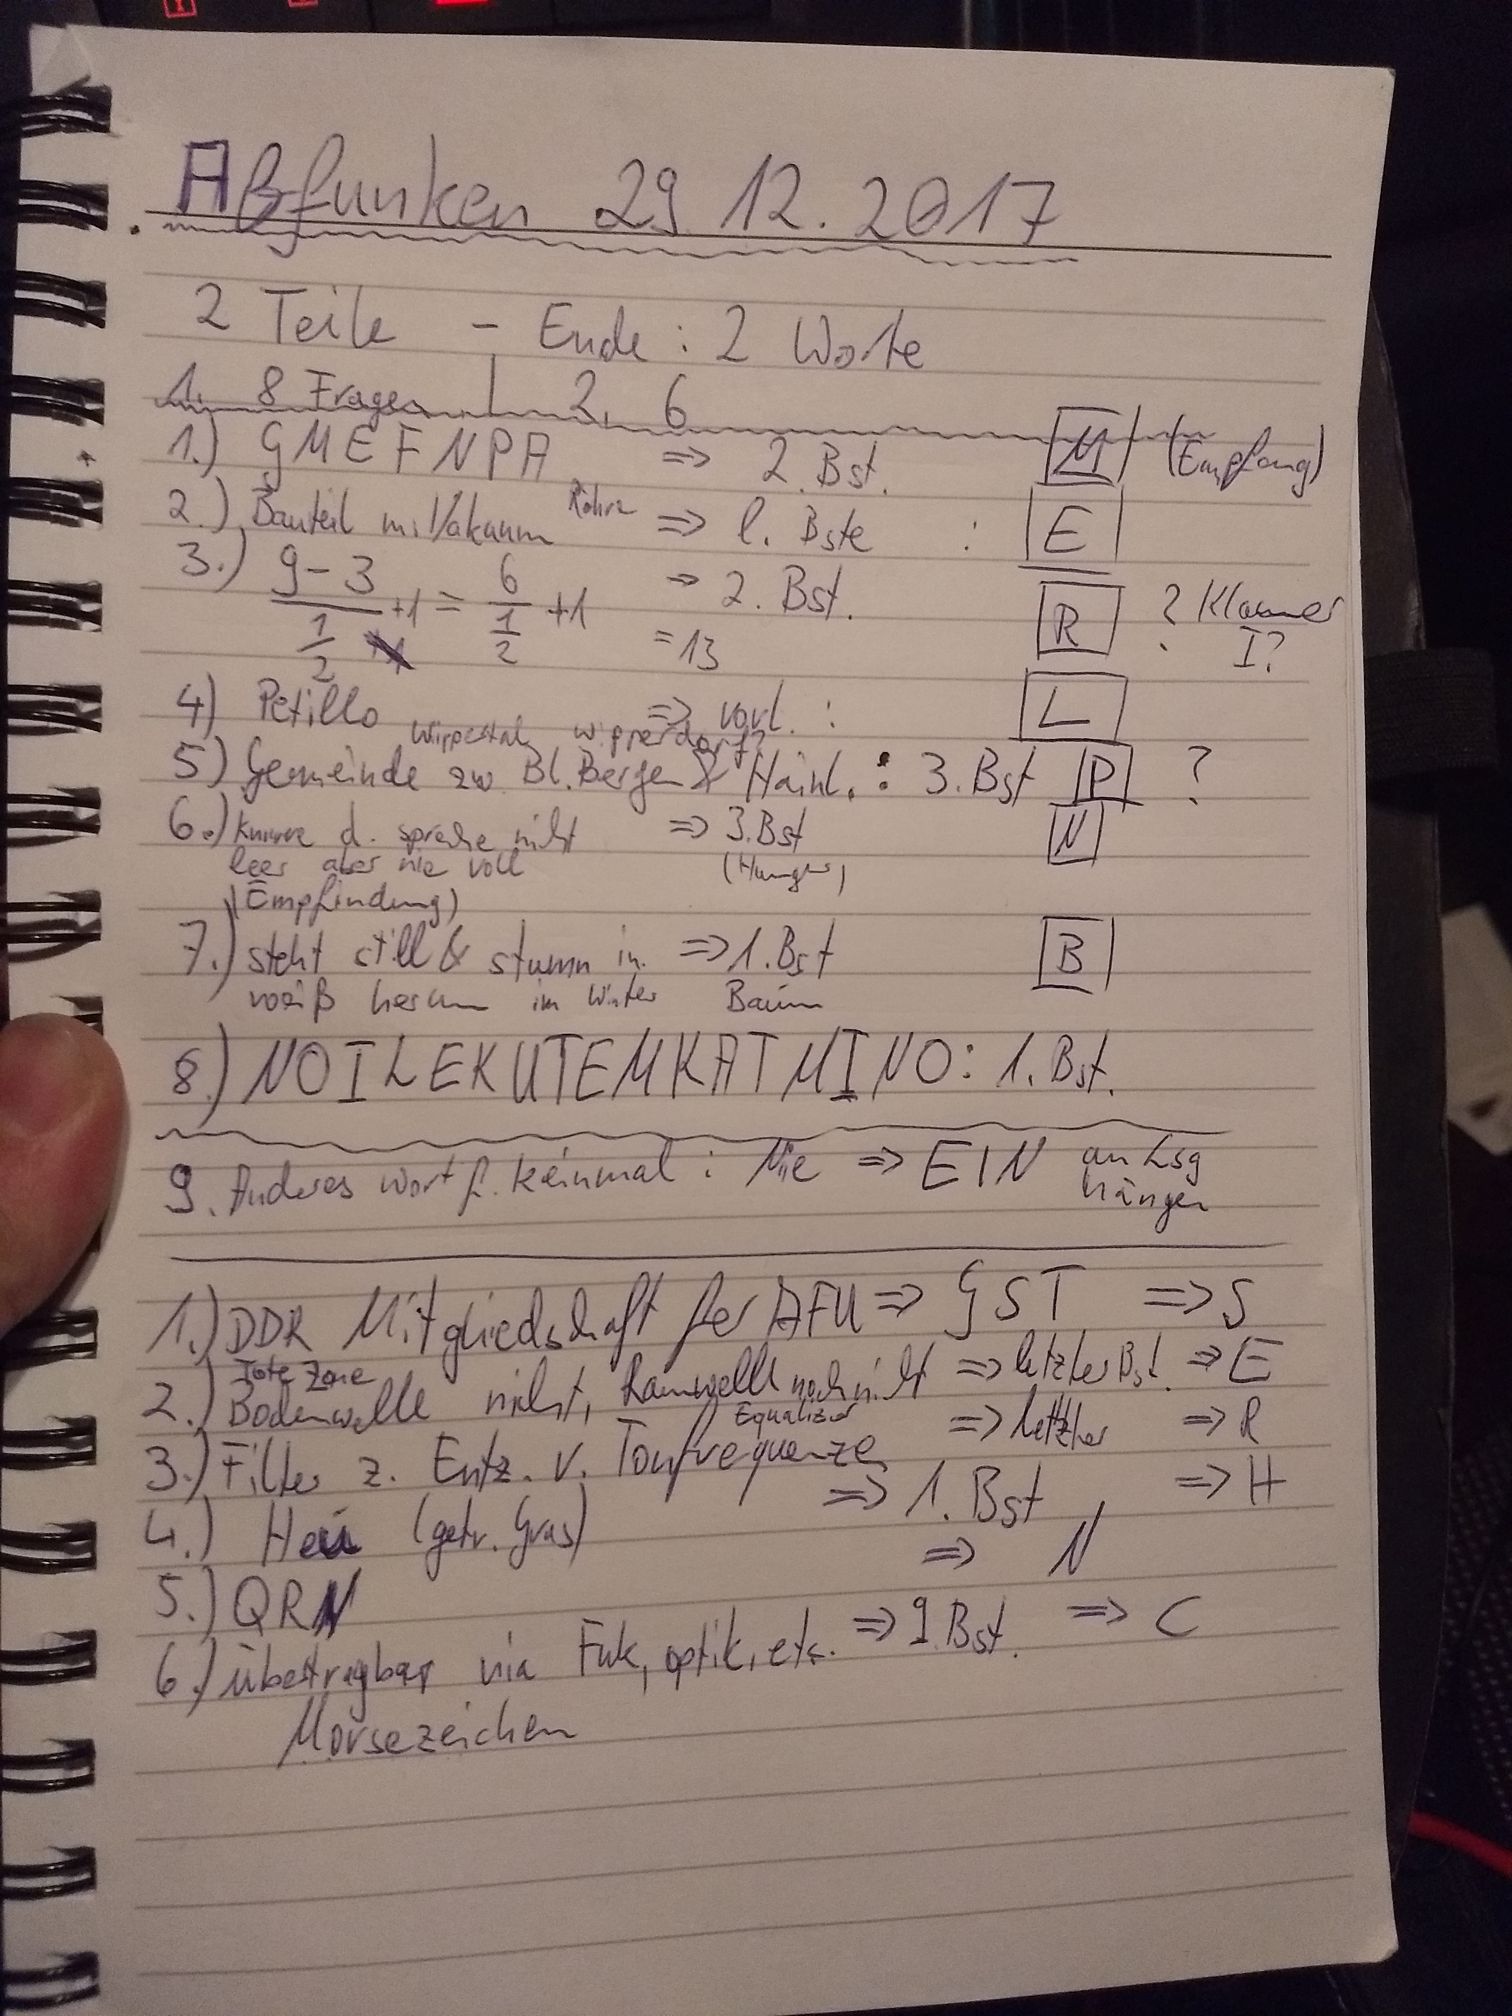 Abfunken 29.12.2017
2 Teile - Ende: 2 Worte
1. 8 Fragen | 2. 6
1.) GMEFNPA => 2. Bst. M (Empfang)
2.) Bauteil m. Vakuum Röhre => l. Bste : E
3.) 9-3 / 1/2 +1 = 6 / 1/2 +1 = 13 => 2. Bst. R ? Klammer I?
4) Petillo => vorl. : L
Wippertal Wipperdorf?
5) Gemeinde zw. Bl. Bergen & Hainl. : 3. Bst P ?
6.) knurre d. spreche nicht => 3. Bst N
leer aber nie voll (Hunger)
(Empfindung)
7.) steht still & stumm in => 1. Bst B
weiß herum im Winter Baum
8.) NOILEKUTEMKATMINO: 1. Bst.
9. Anderes Wort f. keinmal: Nie => EIN an Lsg
hängen
1.) DDR Mitgliedschaft fer AFU => GST => S
Tote Zone
2.) Bodenwelle nicht, Raumwelle noch nicht => letzter Bst. => E
Equalizer
3.) Filter z. Entz. v. Tonfrequenzen => letzter => R
4.) Heu (getr. Gras) => 1. Bst => H
5.) QRN => N
6.) übertragbar via Funk, optik, etc. => 9. Bst. => C
Morsezeichen